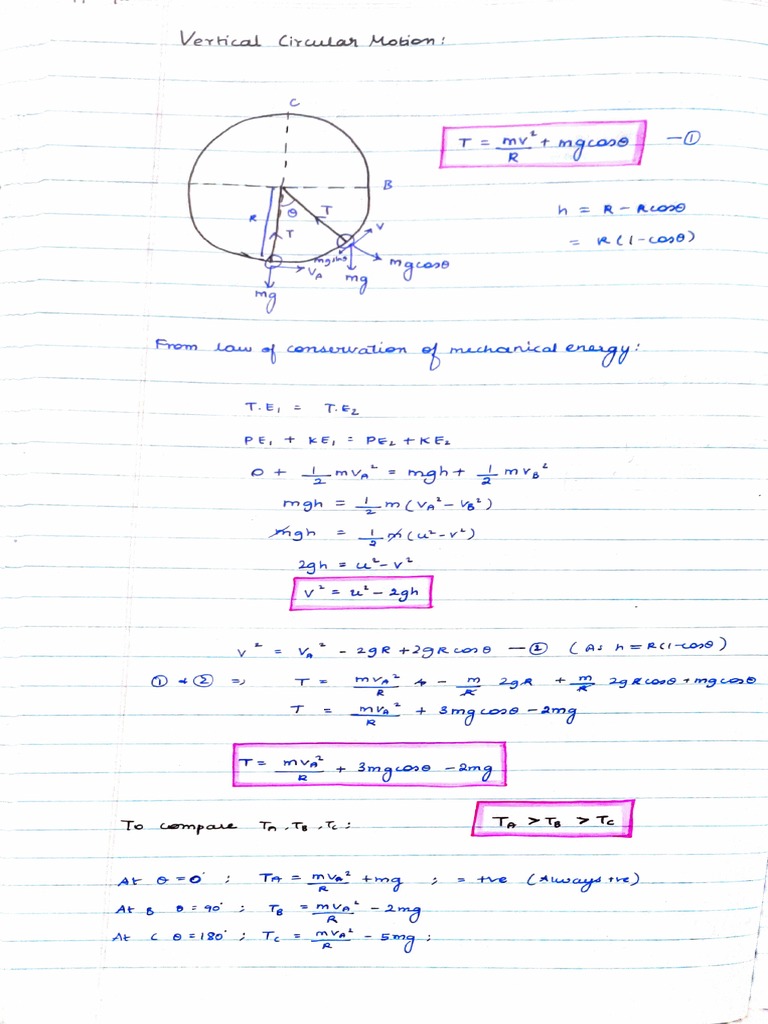 Vertical Circular Motion:
C
T = mv²/R + mgcosθ — ①
B
h = R - Rcosθ
= R(1-cosθ)
R
θ
T
T
v
mgsinθ
mgcosθ
V_A
mg
mg
From law of conservation of mechanical energy:
T.E₁ = T.E₂
PE₁ + KE₁ = PE₂ + KE₂
0 + 1/2 mv_A² = mgh + 1/2 mv_B²
mgh = 1/2 m(v_A² - v_B²)
mgh = 1/2 m(u² - v²)
2gh = u² - v²
v² = u² - 2gh
v² = v_A² - 2gR + 2gRcosθ — ② (As h = R(1-cosθ)
① & ② ⇒ T = mv_A²/R - m/R 2gR + m/R 2gRcosθ + mgcosθ
T = mv_A²/R + 3mgcosθ - 2mg
T = mv_A²/R + 3mgcosθ - 2mg
To compare T_A, T_B, T_C; T_A > T_B > T_C
At θ = 0° ; T_A = mv_A²/R + mg ; = +ve (Always +ve)
At B θ = 90° ; T_B = mv_A²/R - 2mg
At C θ = 180° ; T_C = mv_A²/R - 5mg ;